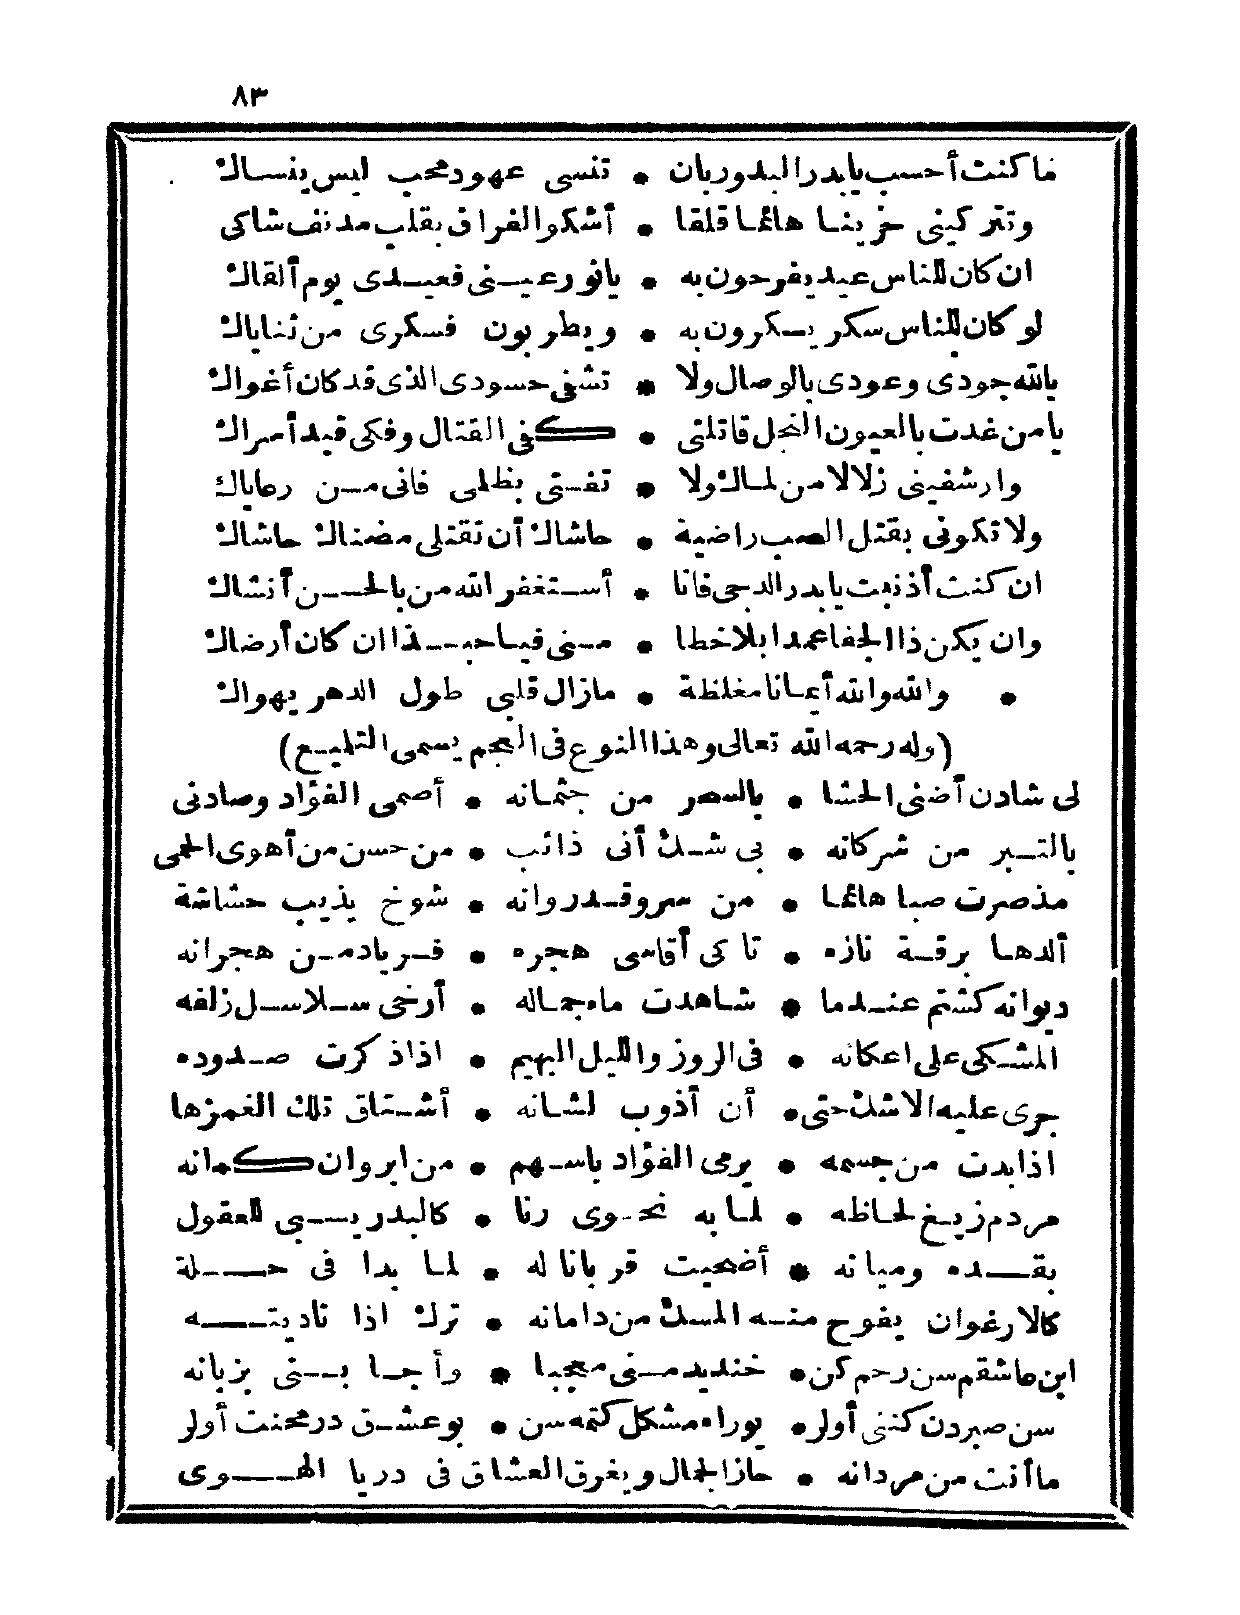 ٨٣
فما كنت أحسب يا بدر البدور بان • تنسى عهود محب ليس ينساك
وتتركيني حزينا هائما قلقا • أشكو الفراق بقلب مدنف شاكى
ان كان للناس عيد يفرحون به • يا نور عيني فعيدى يوم ألقاك
لو كان للناس سكر يسكرون به • ويطربون فسكرى من ثناياك
بالله جودى وعودى بالوصال ولا • تشفى حسودى الذى قد كان أغواك
يا من غدت بالعيون النجل قاتلتى • كفى القتال وفكى قيد أسراك
وارشفينى زلالا من لماك ولا • تفتى بظلمى فانى من رعاياك
ولا تكونى بقتل الصب راضية • حاشاك أن تقتلى مضناك حاشاك
ان كنت أذنبت يا بدر الدجى فانا • أستغفر الله من بالحسن أنشاك
وان يكن ذا الجفا عمدا بلا خطا • منى فيا حبذا ان كان أرضاك
• والله والله أيمانا مغلظة • مازال قلبى طول الدهر يهواك
(وله رحمه الله تعالى وهذا النوع فى العجم يسمى التلميع)
لى شادن أضنى الحشا • بالسحر من جثمانه • أصمى الفؤاد وصادنى
بالتبر من شركانه • بى شك أنى ذائب • من حسن من أهوى الحمى
مذ صرت صبا هائما • من سرو قد روانه • شوخ يذيب حشاشة
ألدها برقة نازه • تاكى أقاسى هجره • فرياد من هجرانه
ديوانه كشتم عندما • شاهدت ماه جماله • أرخى سلاسل زلفه
المشكى على اعكانه • فى الروز والليل البهيم • اذا ذكرت صدوده
جرى عليه الاشك حتى • أن أذوب لشانه • أشتاق تلك الغمزها
اذا بدت من جسمه • يرمى الفؤاد باسهم • من ابروان كمانه
مردم زيغ لحاظه • لما به نحوى رنا • كالبدر يسبى للعقول
بقده وميانه • أضحيت قربانا له • لما بدا فى حلة
كالارغوان يفوح منه المسك من دامانه • ترك اذا ناديته
ابن عاشقم سن رحم كن • خنديد منى معجبا • وأجابنى بزبانه
سن صبردن كنى أولر • يوراه مشكل كتمه سن • بو عشق در محنت أولر
ما أنت من مردانه • حاز الجمال ويغرق العشاق فى دريا الهوى